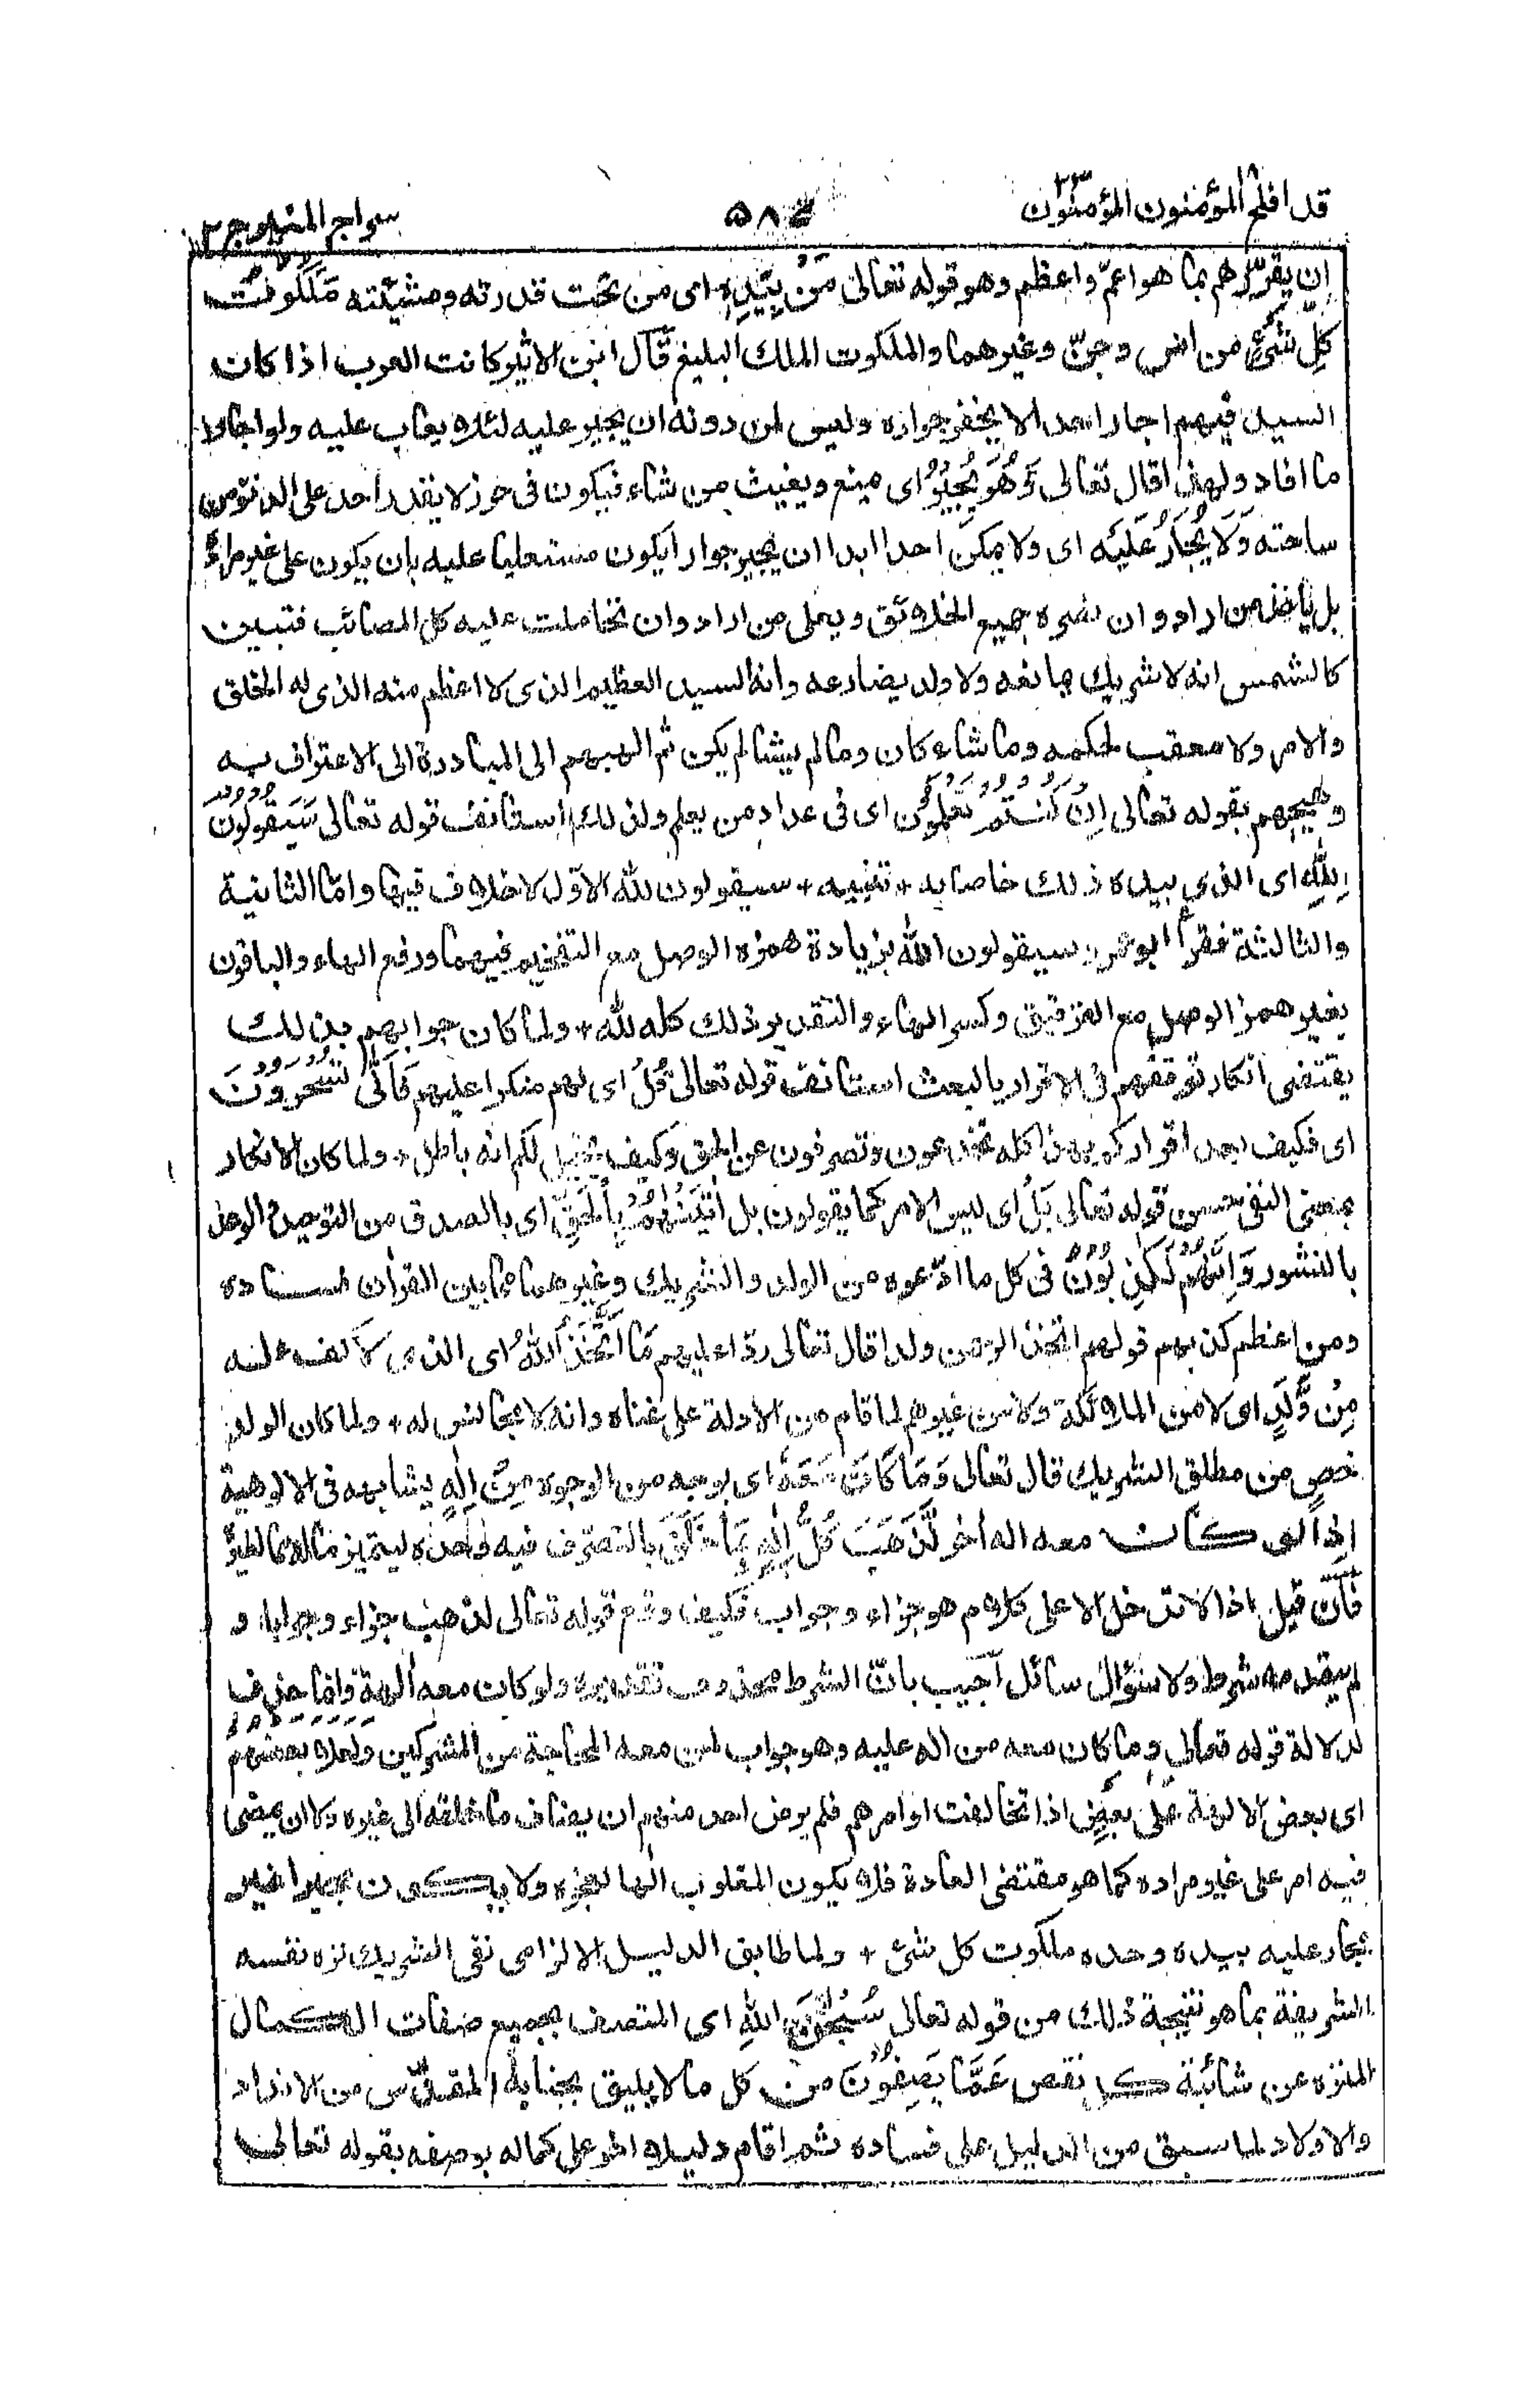 قد افلح المؤمنون المؤمنون ٢٣
٥٨٤
سراج المنير ج ٢
ان يقرّرهم بما هو اعمّ واعظم وهو قوله تعالى مَنْ بِيَدِهٖ اى من تحت قدرته ومشيئته مَلَكُوْتُ
كُلِّ شَىْءٍ من انس وجنّ وغيرهما والملكوت الملك البليغ قال ابن الاثير كانت العرب اذا كان
السيد فيهم اجار احدا لا يخفر جواره وليس لمن دونه ان يجير عليه لئلا يعاب عليه ولو اجار
ما افاد ولهذا قال تعالى وَهُوَ يُجِيْرُ اى يمنع ويغيث من شاء فيكون فى حرز لا يقدر احد على الدنو من
ساحته وَلَا يُجَارُ عَلَيْهِ اى ولا يمكن احدا ابدا ان يجير جوارا يكون مستعليا عليه بان يكون على غير مراده
بل ياخذ من اراد وان نصره جميع الخلائق ويعلى من اراد وان تحاملت عليه كل المصائب فتبين
كالشمس انه لا شريك يمانعه ولا ولد يضارعه وانه السيد العظيم الذى لا اعظم منه الذى له الخلق
والامر ولا معقب لحكمه وما شاء كان وما لم يشا لم يكن ثم الهبهم الى المبادرة الى الاعتراف به
وهيجهم بقوله تعالى اِنْ كُنْتُمْ تَعْلَمُوْنَ اى فى عداد من يعلم ولذلك استانف قوله تعالى سَيَقُوْلُوْنَ
لِلّٰهِ اى الذى بيده ذلك خاصا به + تنبيه + سيقولون لله الاوّل لا خلاف فيها وامّا الثانية
والثالثة فقرأ ابو عمرو سيقولون الله بزيادة همزه الوصل مع التفخيم فيهما ورفع الهاء والباقون
بغير همز الوصل مع الترقيق وكسر الهاء والتقدير ذلك كله لله + ولما كان جوابهم بذلك
يقتضى انكار توقفهم فى الاقرار بالبعث استانف قوله تعالى قُلْ اى لهم منكرا عليهم فَاَنّٰى تُسْحَرُوْنَ
اى فكيف بعد اقراركم بهذا كله تخدعون وتصرفون عن الحق وكيف يخيل لكم انه باطل + ولما كان الانكار
بمعنى النفى حسن قوله تعالى بَلْ اى ليس الامر كما يقولون بل اَتَيْنٰهُمْ بِالْحَقِّ اى بالصدق من التوحيد والوعد
بالنشور وَاِنَّهُمْ لَكٰذِبُوْنَ فى كل ما ادّعوه من الولد والشريك وغيرهما مما بين القرآن فساده
ومن اعظم كذبهم قولهم اتخذ الرحمن ولدا قال تعالى ردّا عليهم مَا اتَّخَذَ اللّٰهُ اى الذى لا كفء له
مِنْ وَّلَدٍ اى لا من الملائكة ولا من غيرهم لما قام من الادلة على غناه وانه لا مجانس له + ولما كان الولد
اخص من مطلق الشريك قال تعالى وَمَا كَانَ مَعَهٗ اى بوجه من الوجوه مِنْ اِلٰهٍ يشابهه فى الالوهية
اِذًا لو كان معه اله أخر لَّذَهَبَ كُلُّ اِلٰهٍۢ بِمَا خَلَقَ بالتصرّف فيه وحده ليتميز ماله مما لغيره
فَاِنّ قيل اذا لا تدخل الا على كلام هو جزاء وجواب فكيف وقع قوله تعالى لذهب جزاء وجوابا و
لم يتقدمه شرط ولا سؤال سائل اجيب بانّ الشرط محذوف تقديره ولو كان معه ألهة وانّما حذف
لدلالة قوله تعالى وما كان معه من اله عليه وهو جواب لمن معه المحاجة من المشركين وَلَعَلَا بَعْضُهُمْ
اى بعض الالهة عَلٰى بَعْضٍ اذا تخالفت اوامرهم فلم يرض احد منهم ان يضاف ما خلقه الى غيره ولا ان يمضى
فيه امر على غير مراده كما هو مقتضى العادة فلا يكون المغلوب الها لعجزه ولا يكون مجيرا غير
مجار عليه بيده وحده ملكوت كل شئ + ولما طابق الدليل الالزامى نفى الشريك نزه نفسه
الشريفة بما هو نتيجة ذلك من قوله تعالى سُبْحٰنَ اللّٰهِ اى المتصف بجميع صفات الكمال
المنزه عن شائبة كل نقص عَمَّا يَصِفُوْنَ من كل ما لا يليق بجنابه المقدّس من الانداد
والاولاد لما سبق من الدليل على فساده ثم اقام دليلا اخر على كماله بوصفه بقوله تعالى